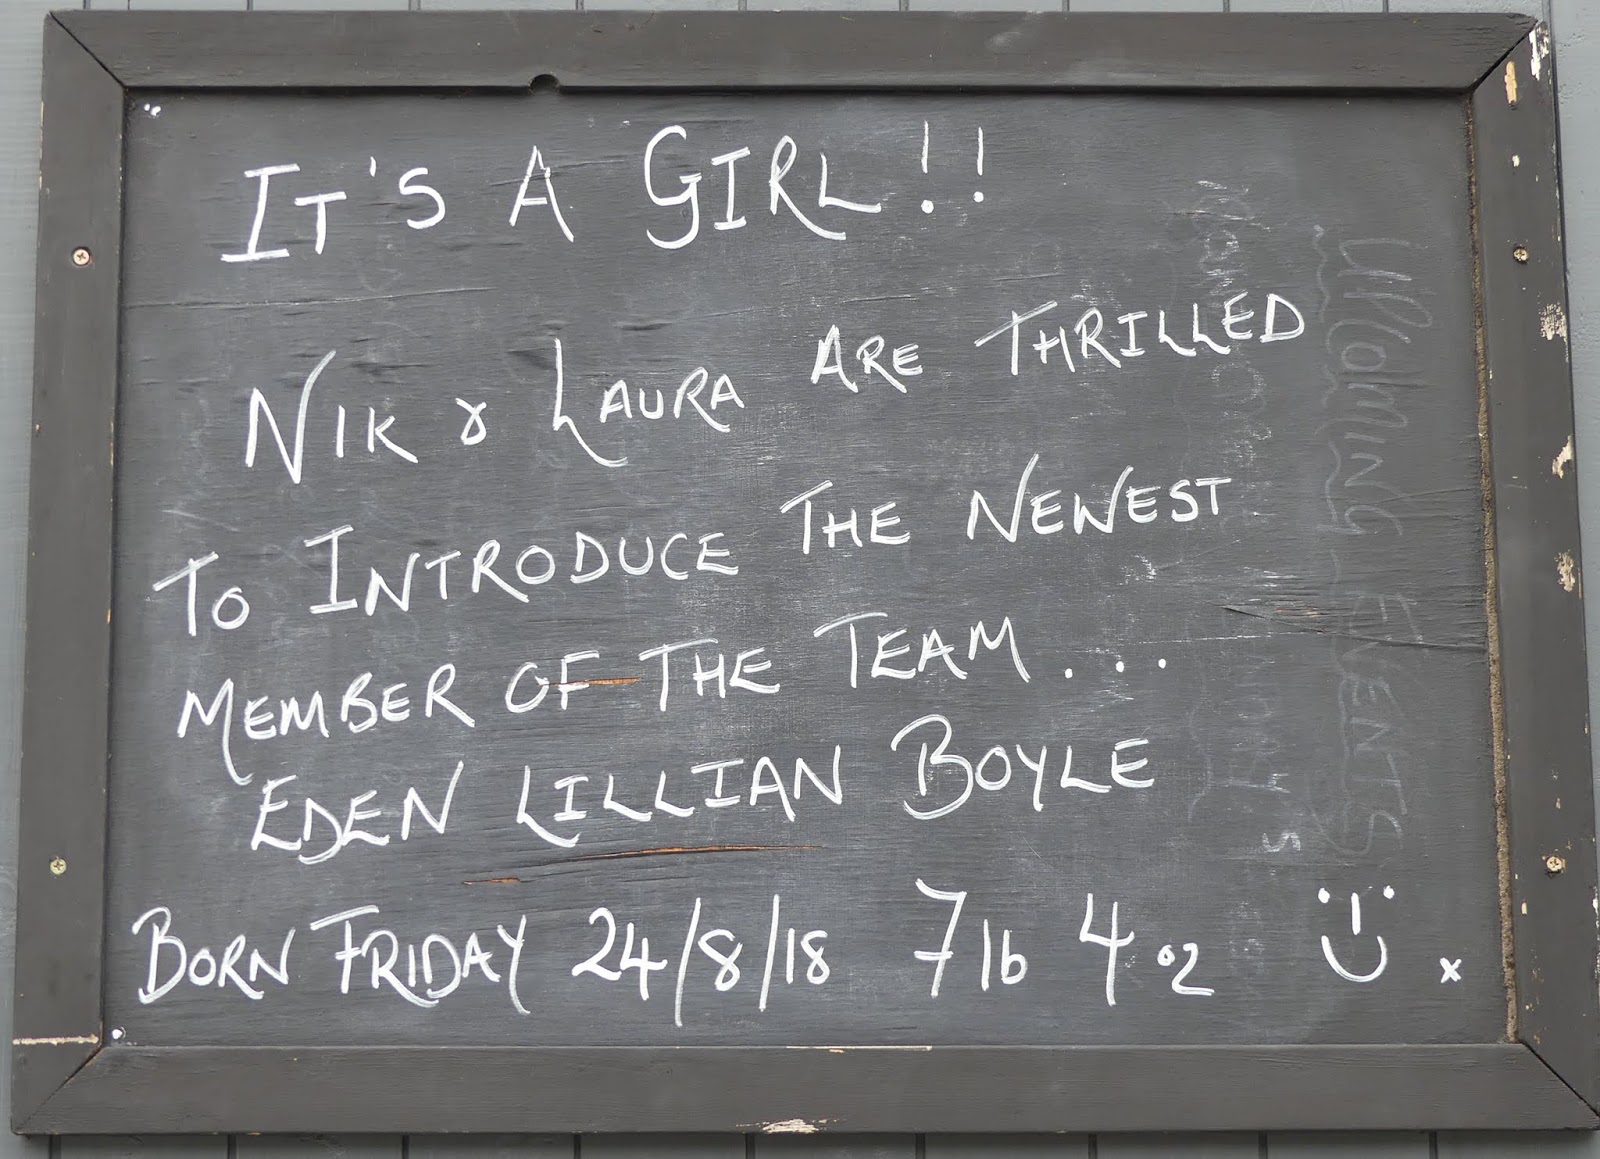 IT'S A GIRL!!
NIK & LAURA ARE THRILLED
TO INTRODUCE THE NEWEST
MEMBER OF THE TEAM....
EDEN LILLIAN BOYLE
BORN FRIDAY 24/8/18 7lb 4oz x
UPCOMING EVENTS